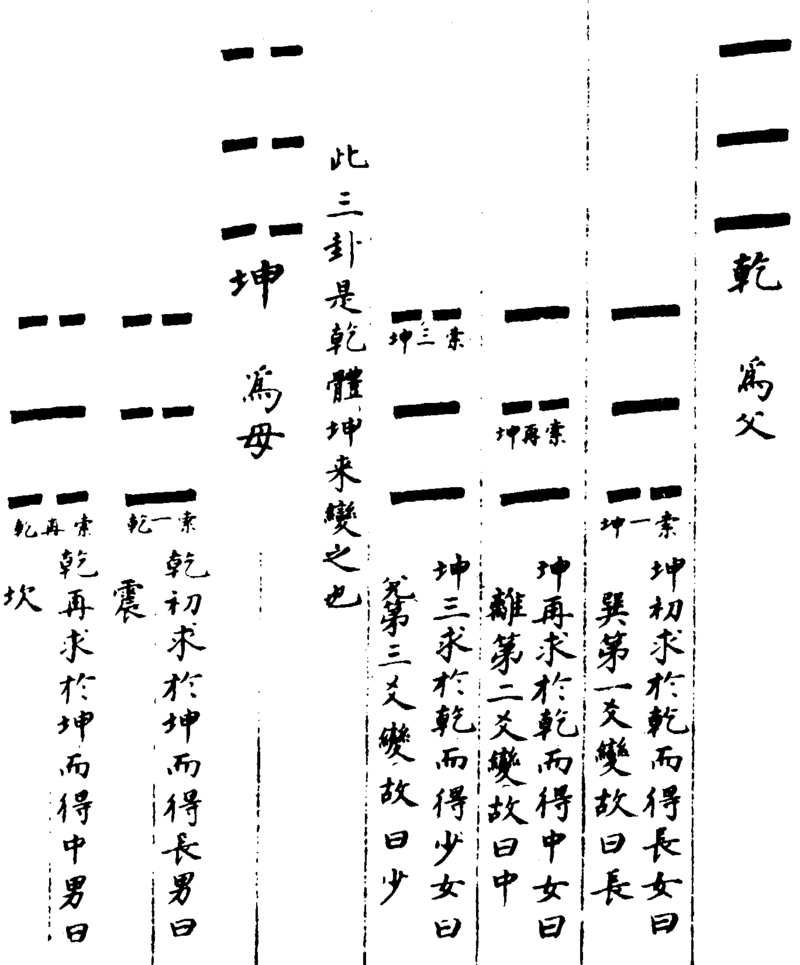 乾 爲父
坤一索
坤初求於乾而得長女曰
巽第一爻變故曰長
坤再索
坤再求於乾而得中女曰
離第二爻變故曰中
坤三索
坤三求於乾而得少女曰
兌第三爻變故曰少
此三卦是乾體坤来變之也
坤 爲母
乾一索
乾初求於坤而得長男曰
震
乾再索
乾再求於坤而得中男曰
坎